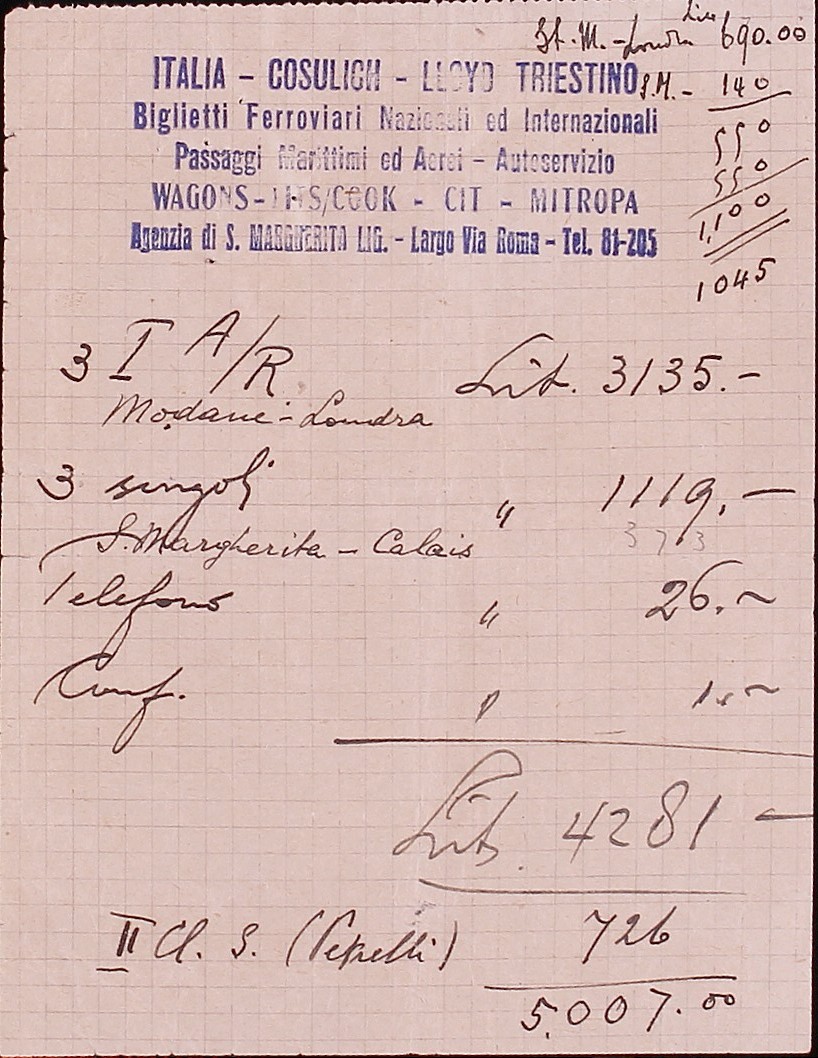 St. M. - Londra Lire 690.00
S.M. - 140
550
550
1,100
1045
ITALIA - COSULICH - LLOYD TRIESTINO
Biglietti Ferroviari Nazionali ed Internazionali
Passaggi Marittimi ed Aerei - Autoservizio
WAGONS-LITS/COOK - CIT - MITROPA
Agenzia di S. MARGUERITA LIG. - Largo Via Roma - Tel. 81-205
3 I A/R Lit. 3135.-
Modane - Londra
3 singoli " 1119.-
S. Margherita - Calais 373
Telefono " 26.-
Conf. " 1.-
Lit. 4281 -
II Cl. S. ( ) 726
5.007.00